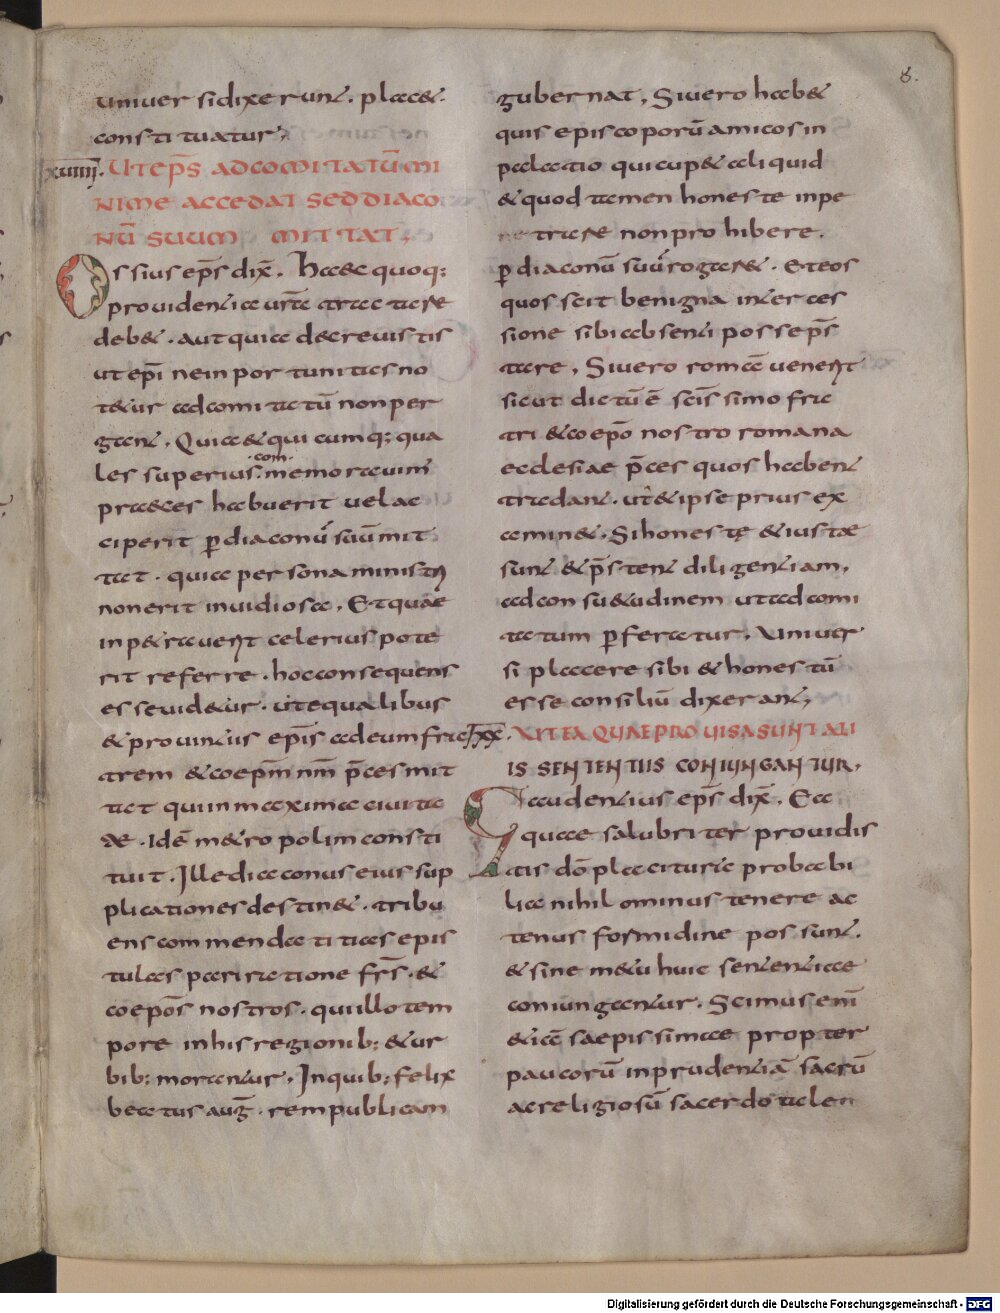 8.
uniuersi dixerunt. placet.
constituatur;
xviiii. UT EP̄S AD COMITATŪ MI
NIME ACCEDAT SED DIACO
NŪ SUUM MITTAT,
Ossius ep̄s dix̄. Haec quoq;
prouidentia ur̄te tractare
debet. aut quia decreuistis
ut ep̄i ne inportunitas no
tetur ad comitatū non per
gant. Quia et quicumq; qua
les superius .com. memorauim̄
praeces habuerit uel ac
ciperit p̱ diaconū suū mit
tat. quia persona ministri
non erit inuidiosa. Et quae
inpetrauerit celerius pote
rit referre. hoc consequens
esse uidetur. ut e qualibus
et prouintiis ep̄is ad eum fra
trem et coep̄m nm̄ p̄ces mit
tat qui in maxima ciuita
te. Idē metropolim consti
tuit. Ille diaconus eius sup
plicationes destinet. tribu
ens commendatitias epis
tulas pari ratione fr̄s. et
coep̄os nostros. qui illo tem
pore in his regionib; et ur
bib; morantur. In quib; felix
beatus auḡ. rem publicam
gubernat, Si uero habet
quis episcoporū amicos in
palatio qui cupet aliquid
et quod tamen honeste inpe
trare non prohibere.
p̱ diaconū suū rogare. et eos
quos scit benigna interces
sione sibi absenti posse p̄s
tare, Si uero romā uenerit
sicut dictū ē sc̄issimo fra
tri et coep̄o nostro romana
ecclesiae p̄ces quos habent
tradant. ut et ipse prius ex
aminet. Si honestę et iustae
sunt et p̄stent diligentiam,
ad consuetudinem ut ad comi
tatum p̱feratur. Uniuer
si placere sibi et honestū
esse consiliū dixerant,
xx. UT EA QUAE PROUISA SUNT ALI
IS SENTENTIIS CONIUNGANTUR,
Gaudentius ep̄s dix̄. Ea
quae salubriter prouidis
tis dō placitura probabi
lia nihilominus tenere ac
tenus formidine possunt.
et si ne metu huic sententiae
coniungantur. Scimus enī
etiā saepissimae propter
paucorū inprudentiā sacrū
ac religiosū sacerdotalem
Digitalisierung gefördert durch die Deutsche Forschungsgemeinschaft - DFG